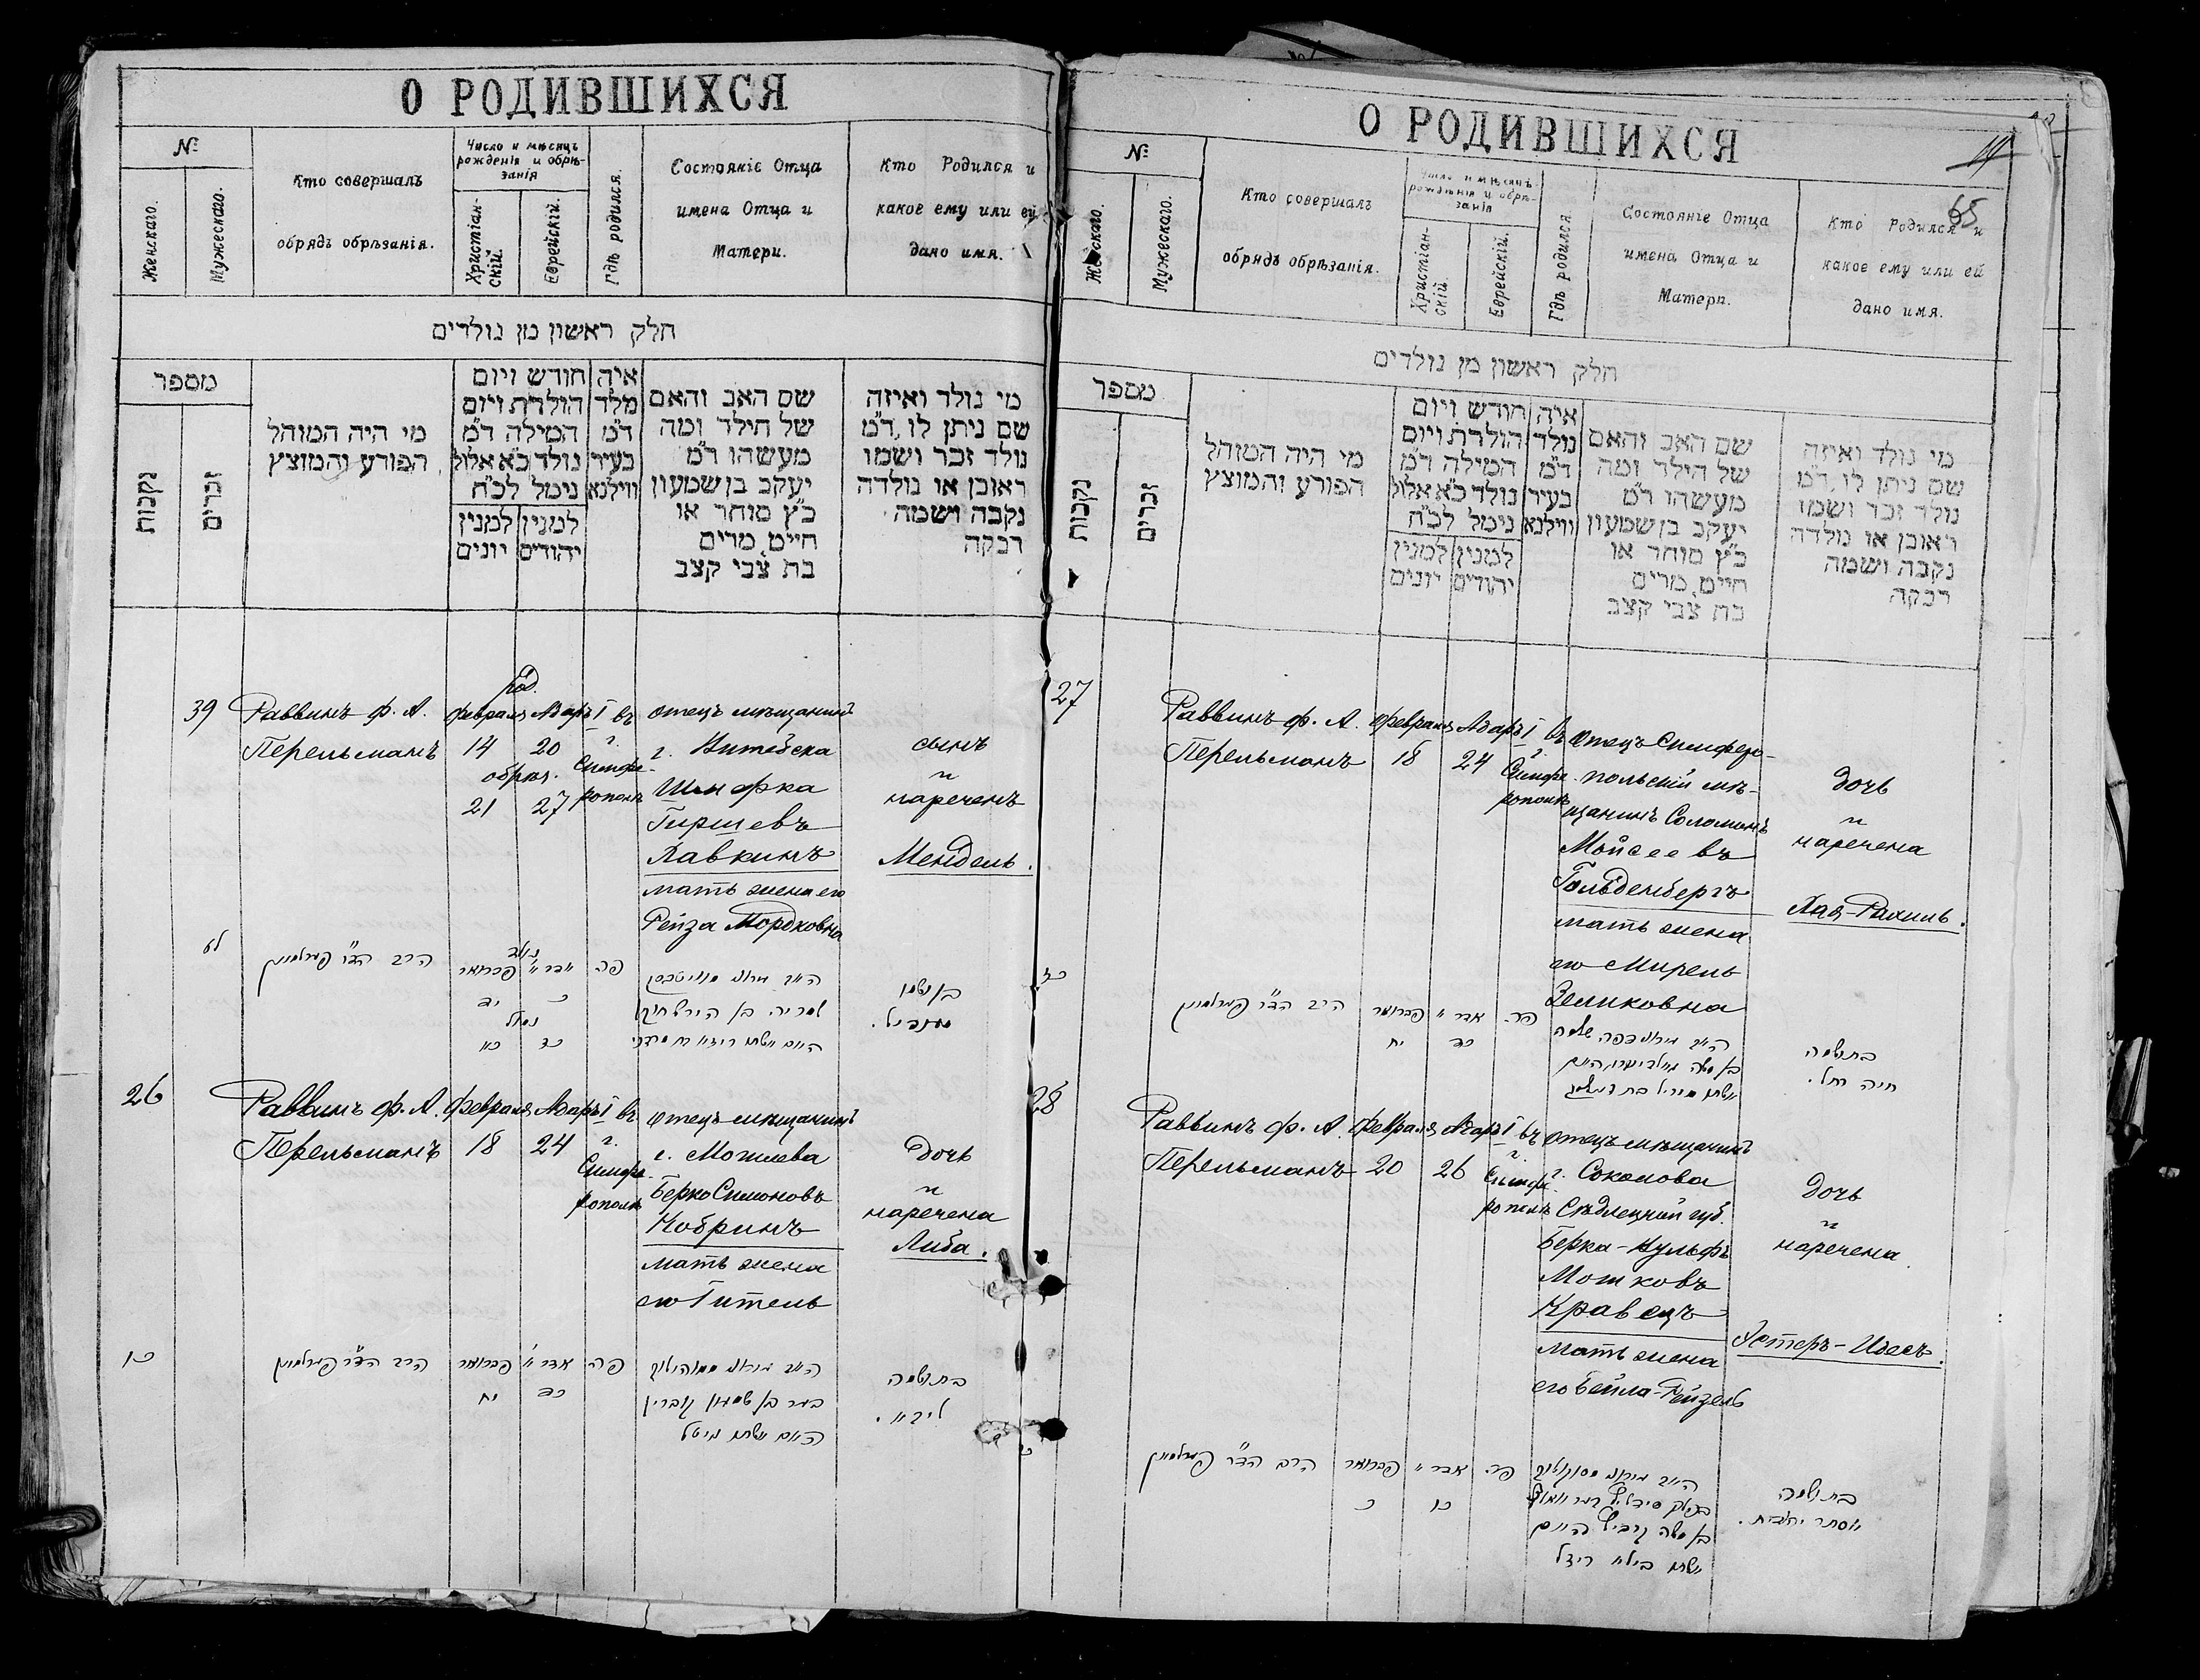 О РОДИВШИХСЯ
№
Женскаго.
Мужескаго.
Кто совершалъ
обрядъ обрѣзанія.
Число и мѣсяцъ
рожденія и обрѣ-
занія
Христіан-
скій.
Еврейскій.
Гдѣ родился.
Состояніе Отца
имена Отца и
Матери.
Кто Родился и
какое ему или ей
дано имя.
חלק ראשון מן נולדים
מספר
נקבות
זכרים
מי היה המוהל
הפורע והמוצץ
חודש ויום
הולדת ויום
המילה ד״מ
נולד כ״א אלול
נימל לכ״ח
למנין למנין
יהודים יונים
איה
מלד
ד״מ
בעיר
ווילנא
שם האב והאם
של הילד ומה
מעשהו ד״מ
יעקב בן שמעון
כ״ץ סוחר או
חייט, מרים
בת צבי קצב
מי נולד ואיזה
שם ניתן לו, ד״מ
נולד זכר ושמו
ראובן או נולדה
נקבה ושמה
רבקה
39
Раввинъ Ф. А.
Перельманъ
род.
Февраля Адаръ I
14 20
обрѣз.
21 27
въ
г.
Симфе-
рополѣ
отецъ мѣщанинъ
г. Витебска
Шифка
Гиршевъ
Хавкинъ
мать жена его
Рейза Мордковна
сынъ
и
нареченъ
Мендель.
לט
הרב הד״ר פערלמאן
נולד
אדר י׳ פברואר
כ יד
נמול
פה
26
Раввинъ Ф. А.
Перельманъ
Февраля Адаръ I
18 24
въ
г.
Симфе-
рополѣ
отецъ мѣщанинъ
г. Могилева
Берко Симоновъ
Кобринъ
мать жена
его Гитель
дочь
и
наречена
Либа.
כו
הרב הד״ר פערלמאן
אדר י׳ פברואר
כד יח
פה
בר בן שמעון קברין
О РОДИВШИХСЯ
19
65
№
Женскаго.
Мужескаго.
Кто совершалъ
обрядъ обрѣзанія.
Число и мѣсяцъ
рожденія и обрѣ-
занія
Христіан-
скій.
Еврейскій.
Гдѣ родился
Состояніе Отца
имена Отца и
Матери.
Кто Родился и
какое ему или ей
дано имя.
חלק ראשון מן נולדים
מספר
נקבות
זכרים
מי היה המוהל
הפורע והמוצץ
חודש ויום
הולדת ויום
המילה ד״מ
נולד כ״א אלול
נימל לכ״ח
למנין למנין
יהודים יונים
איה
נולד
ד״מ
בעיר
ווילנא
שם האב והאם
של הילד ומה
מעשהו ד״מ
יעקב בן שמעון
כ״ץ סוחר או
חייט, מרים
בת צבי קצב
מי נולד ואיזה
שם ניתן לו, ד״מ
נולד זכר ושמו
ראובן או נולדה
נקבה ושמה
רבקה
27
Раввинъ Ф. А.
Перельманъ
Февраля Адаръ I
18 24
въ
г.
Симфе-
рополѣ
Отецъ Симферо-
польскій мѣ-
щанинъ Соломонъ
Мойсеевъ
Гольденбергъ
мать жена
его Мирель
Зеликовна
дочь
и
наречена
Хая-Рахиль.
כז
הרב הד״ר פערלמאן
אדר י׳ פברואר
כד יח
פה
חיה רחל.
28
Раввинъ Ф. А.
Перельманъ
Февраля Адаръ I
20 26
въ
г.
Симфе-
рополѣ
отецъ мѣщанинъ
г. Соколова
Сѣдлецкой губ.
Берка-Вульфъ
Мошковъ
Кравецъ
мать жена
его Бейла-Рейзель
дочь
и
наречена
Эстеръ-Идесъ.
הרב הד״ר פערלמאן
אדר י׳ פברואר
כו כ
פה